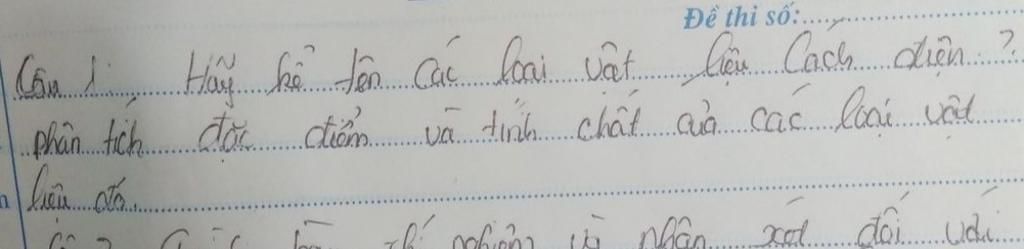 Đề thi số:
Câu 1: Hãy kể tên các loại vật liệu cách điện?
phân tích đặc điểm và tính chất của các loại vật
liệu đó.
nghiệm và nhận xét đối với